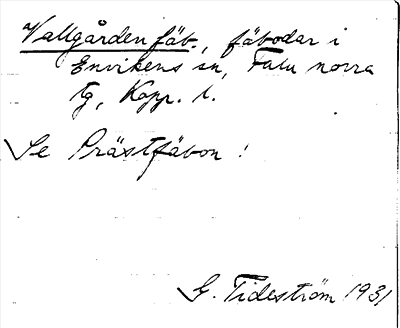 Vallgården fäb., fäbodar i
Envikens sn, Falu norra
tg, Kopp. l.
Se Prästfäbon!
G. Tideström 1931